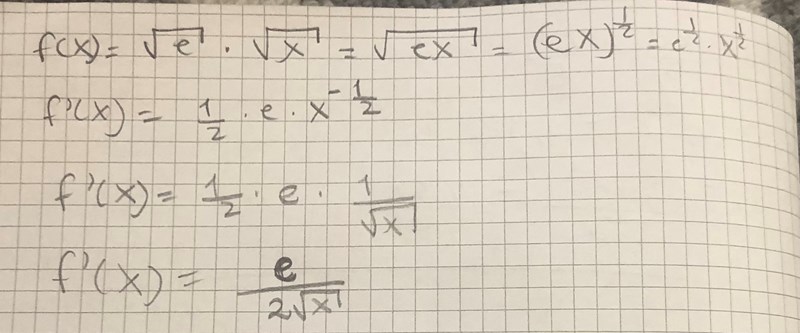 f(x) = √e · √x = √ex = (ex)^½ = e^½ · x^½
f'(x) = 1/2 · e · x^-1/2
f'(x) = 1/2 · e · 1/√x
f'(x) = e/2√x